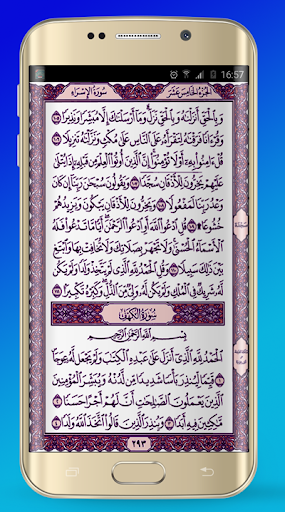 16:57
سُورَةُ الإِسْرَاءِ
الجُزْءُ الخَامِسَ عَشَرَ
وَبِٱلْحَقِّ أَنزَلْنَٰهُ وَبِٱلْحَقِّ نَزَلَ وَمَآ أَرْسَلْنَٰكَ إِلَّا مُبَشِّرًا وَنَذِيرًا ١٠٥
وَقُرْءَانًا فَرَقْنَٰهُ لِتَقْرَأَهُۥ عَلَى ٱلنَّاسِ عَلَىٰ مُكْثٍ وَنَزَّلْنَٰهُ تَنزِيلًا ١٠٦
قُلْ ءَامِنُوا۟ بِهِۦٓ أَوْ لَا تُؤْمِنُوٓا۟ إِنَّ ٱلَّذِينَ أُوتُوا۟ ٱلْعِلْمَ مِن قَبْلِهِۦٓ إِذَا يُتْلَىٰ
عَلَيْهِمْ يَخِرُّونَ لِلْأَذْقَانِ سُجَّدًا ١٠٧ وَيَقُولُونَ سُبْحَٰنَ رَبِّنَآ إِن كَانَ
وَعْدُ رَبِّنَا لَمَفْعُولًا ١٠٨ وَيَخِرُّونَ لِلْأَذْقَانِ يَبْكُونَ وَيَزِيدُهُمْ
خُشُوعًا ١٠٩ قُلِ ٱدْعُوا۟ ٱللَّهَ أَوِ ٱدْعُوا۟ ٱلرَّحْمَٰنَ أَيًّا مَّا تَدْعُوا۟ فَلَهُ
ٱلْأَسْمَآءُ ٱلْحُسْنَىٰ وَلَا تَجْهَرْ بِصَلَاتِكَ وَلَا تُخَافِتْ بِهَا وَٱبْتَغِ
بَيْنَ ذَٰلِكَ سَبِيلًا ١١٠ وَقُلِ ٱلْحَمْدُ لِلَّهِ ٱلَّذِى لَمْ يَتَّخِذْ وَلَدًا وَلَمْ يَكُن
لَّهُۥ شَرِيكٌ فِى ٱلْمُلْكِ وَلَمْ يَكُن لَّهُۥ وَلِىٌّ مِّنَ ٱلذُّلِّ وَكَبِّرْهُ تَكْبِيرًۢا ١١١
سُورَةُ الكَهْفِ
بِسْمِ ٱللَّهِ ٱلرَّحْمَٰنِ ٱلرَّحِيمِ
ٱلْحَمْدُ لِلَّهِ ٱلَّذِىٓ أَنزَلَ عَلَىٰ عَبْدِهِ ٱلْكِتَٰبَ وَلَمْ يَجْعَل لَّهُۥ عِوَجَا ١
قَيِّمًا لِّيُنذِرَ بَأْسًا شَدِيدًا مِّن لَّدُنْهُ وَيُبَشِّرَ ٱلْمُؤْمِنِينَ
ٱلَّذِينَ يَعْمَلُونَ ٱلصَّٰلِحَٰتِ أَنَّ لَهُمْ أَجْرًا حَسَنًا ٢
مَّٰكِثِينَ فِيهِ أَبَدًا ٣ وَيُنذِرَ ٱلَّذِينَ قَالُوا۟ ٱتَّخَذَ ٱللَّهُ وَلَدًا ٤
٢٩٣